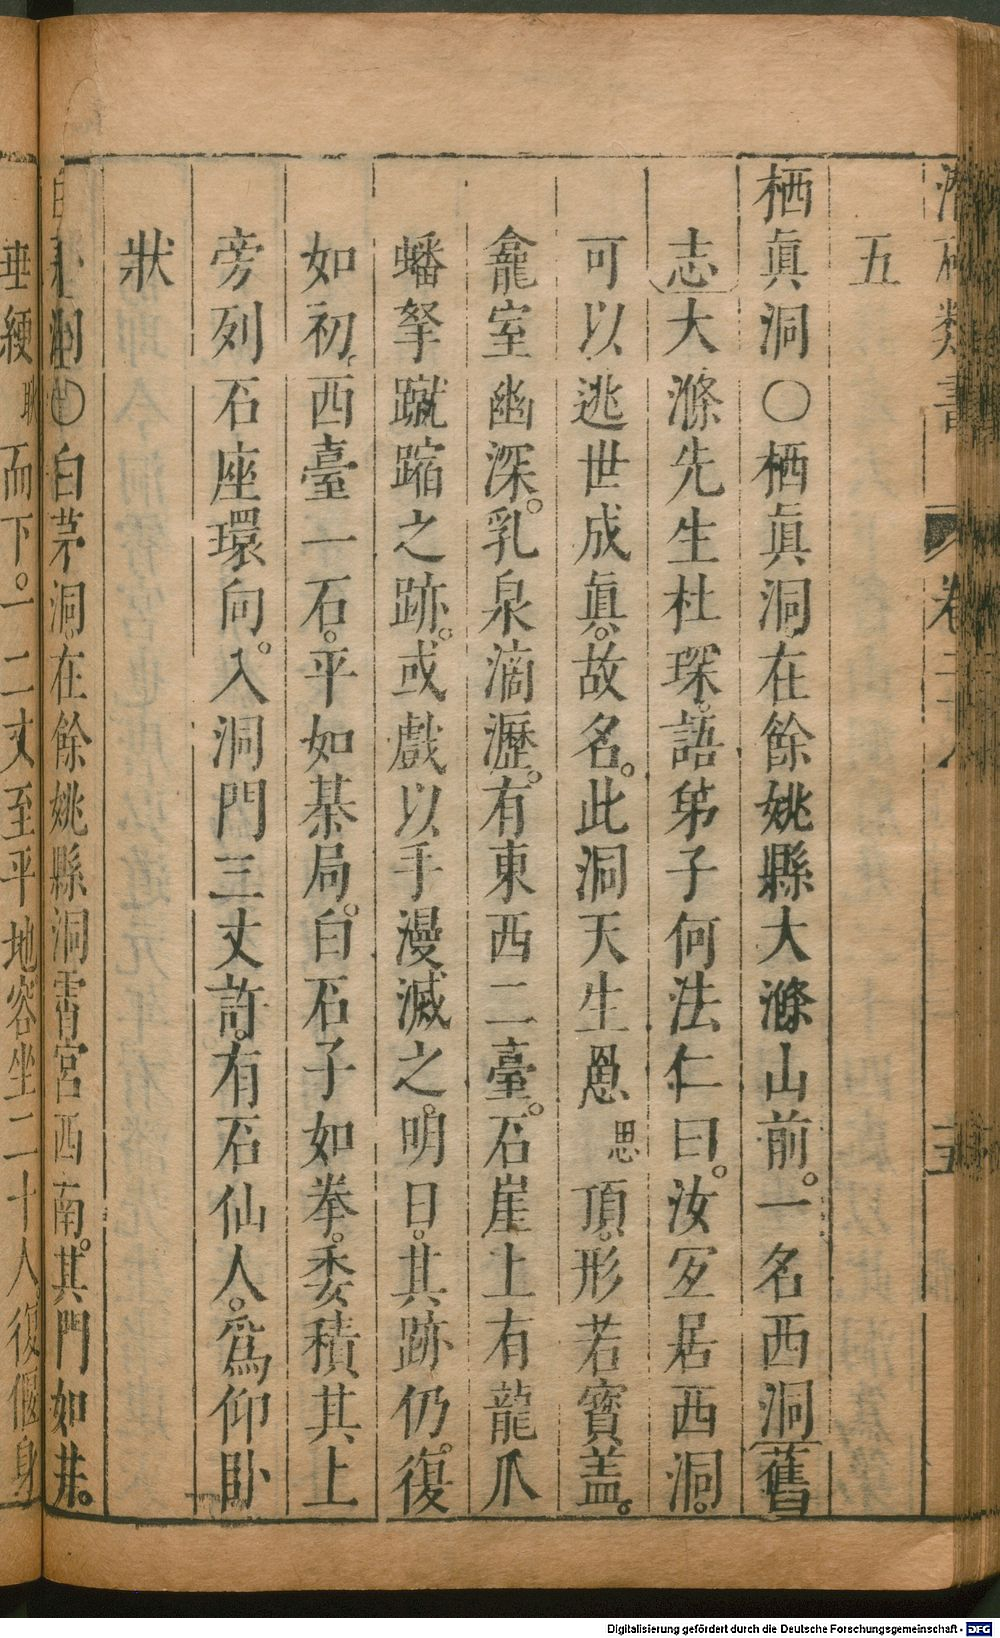 類書 卷
五
栖眞洞〇栖眞洞在餘姚縣大滌山前。一名西洞舊
志大滌先生杜琛。語弟子何法仁曰。汝宜居西洞。
可以逃世成眞。故名。此洞天生罳思頂。形若寳盖。
龕室幽深。乳泉滴瀝。有東西二臺。石崖上有龍爪
蟠拏蹴蹜之跡。或戲以手漫滅之。明日。其跡仍。復
如初。西臺一石。平如棊局。白石子如拳。委積其上
旁列石座環向。入洞門三丈許。有石仙人。爲仰卧
狀
洞〇白茅洞。在餘姚縣洞霄宮西南。其門如井。
垂綆而下。一二丈至平地容坐二十人復偃身
Digitalisierung gefördert durch die Deutsche Forschungsgemeinschaft - DFG